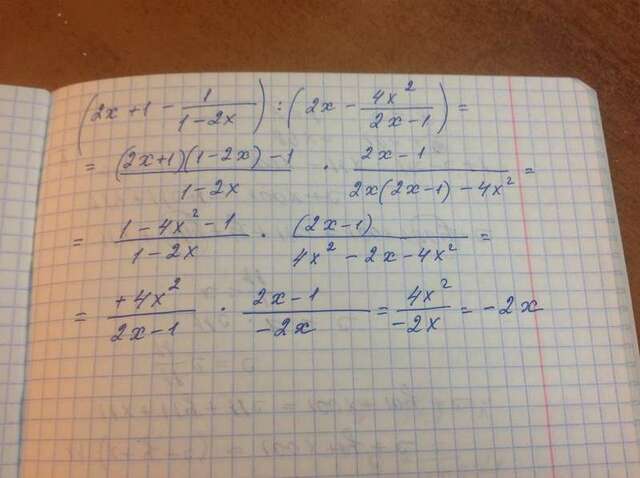 (2x + 1 - 1/(1-2x)) : (2x - 4x²/(2x-1)) =
= ((2x+1)(1-2x) - 1)/(1-2x) · (2x-1)/(2x(2x-1) - 4x²) =
= (1 - 4x² - 1)/(1-2x) · (2x-1)/(4x² - 2x - 4x²) =
= (+4x²)/(2x-1) · (2x-1)/(-2x) = 4x²/(-2x) = -2x